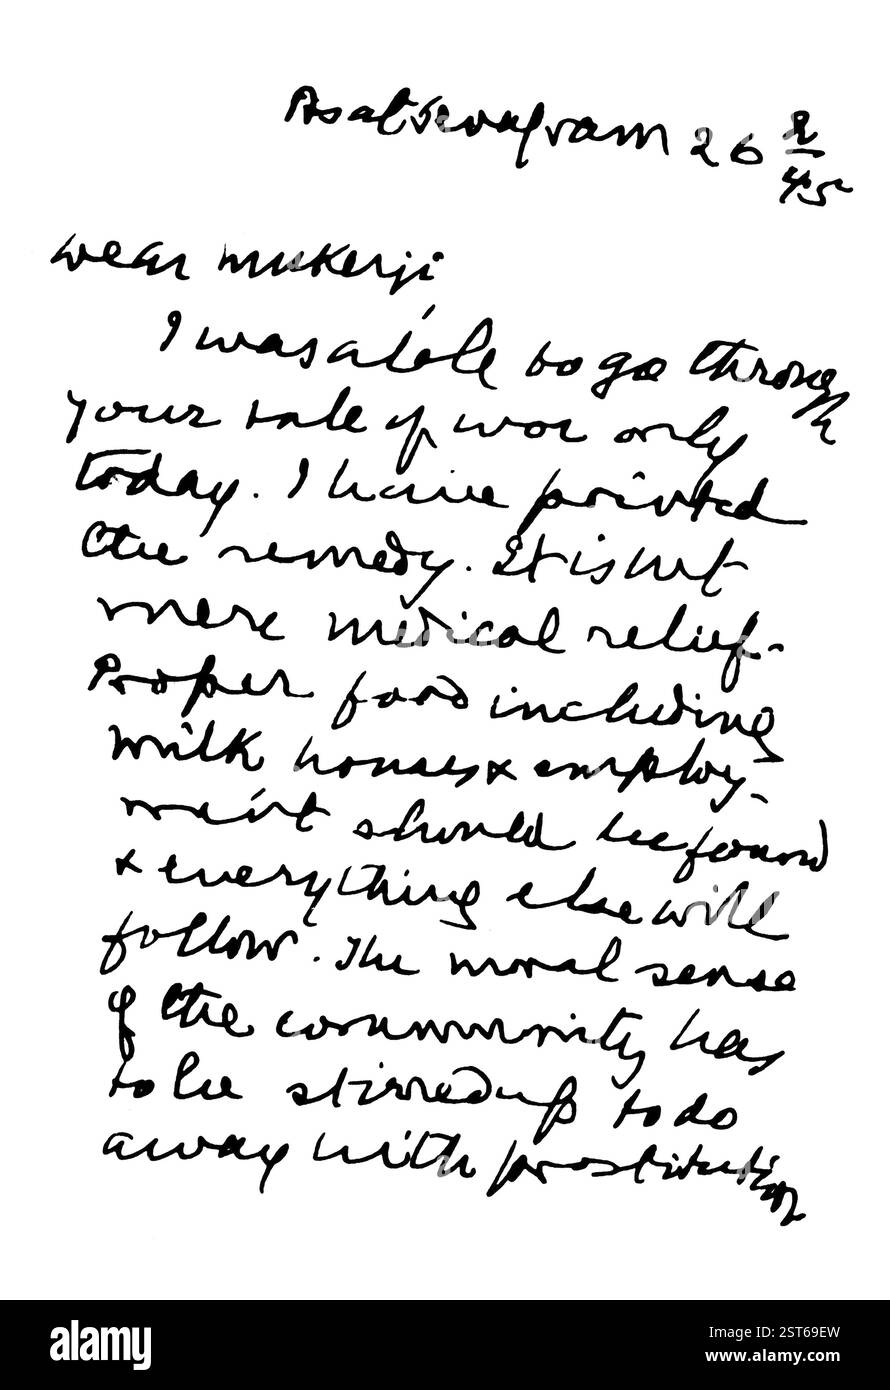 As at Sevagram 26 2/45
Dear Mukerji
I was able to go through
your tale of woe only
today. I have printed
the remedy. It is not
mere medical relief.
Proper food including
milk houses & employ-
ment should be found
& everything else will
follow. The moral sense
of the community has
to be stirred up to do
away with prostitution
alamy
Image ID: 2ST69EW
www.alamy.com